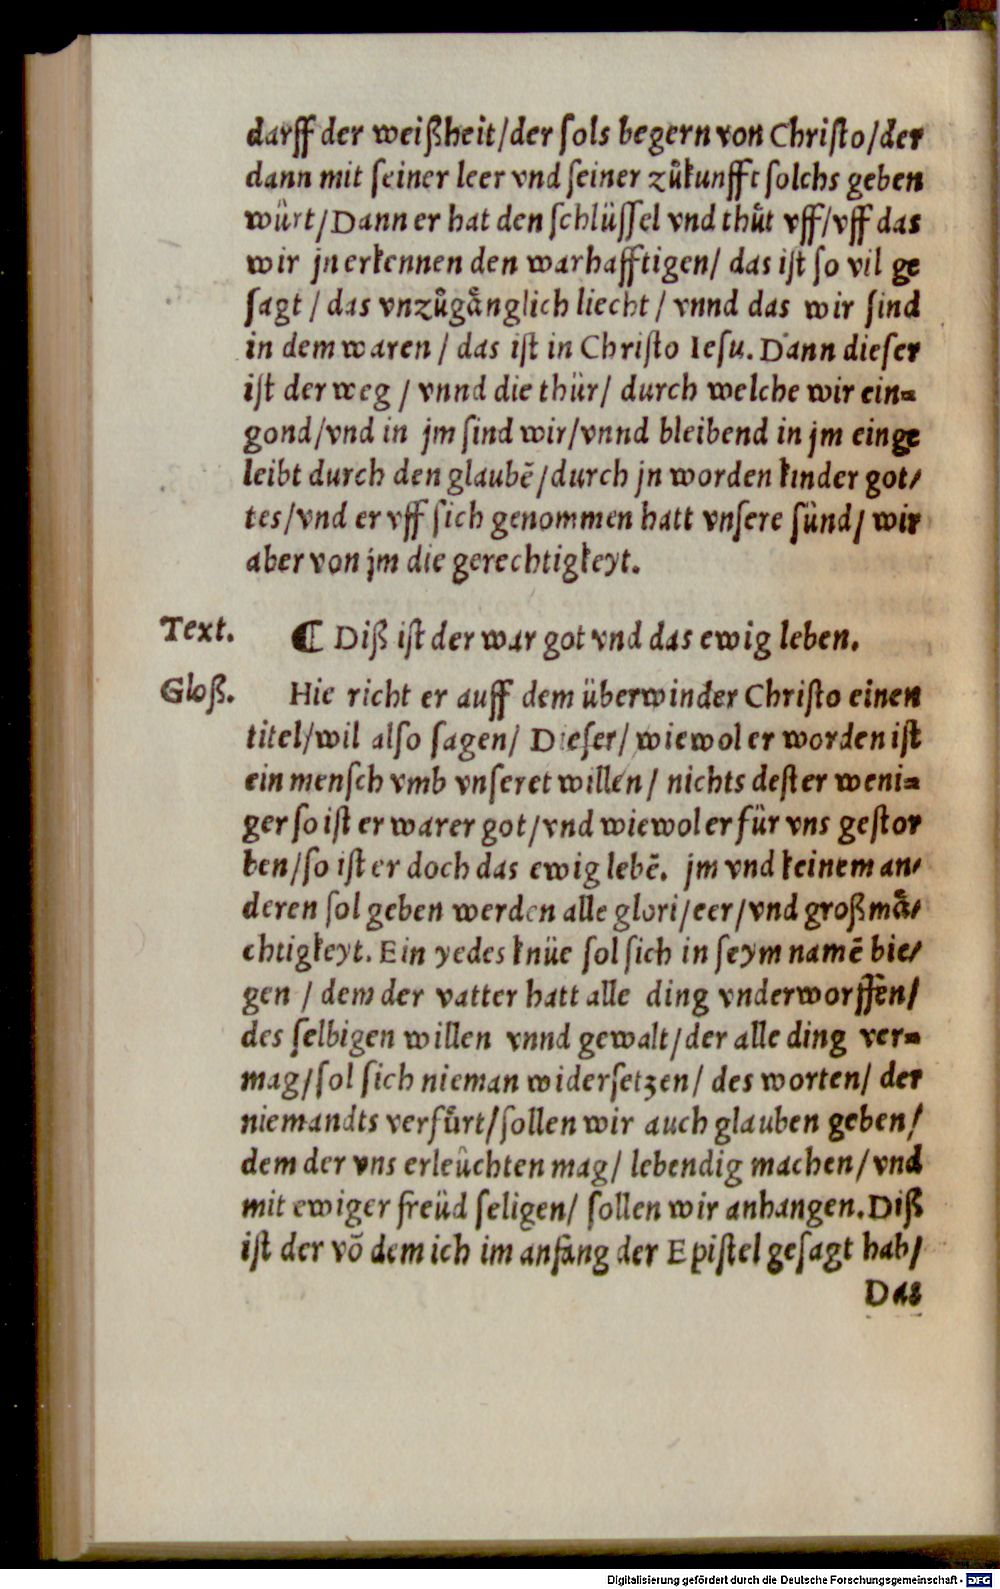 darff der weißheit/der ſols begern von Chriſto/der
dann mit ſeiner leer vnd ſeiner zůkunfft ſolchs geben
würt/Dann er hat den ſchlüſſel vnd thůt vff/vff das
wir jn erkennen den warhafftigen/ das iſt ſo vil ge
ſagt / das vnzůgaͤnglich liecht / vnnd das wir ſind
in dem waren / das iſt in Chriſto Ieſu. Dann dieſer
iſt der weg / vnnd die thür/ durch welche wir ein⸗
gond/vnd in jm ſind wir/vnnd bleibend in jm einge
leibt durch den glaubē/durch jn worden kinder got/
tes/vnd er vff ſich genommen hatt vnſere ſünd/ wir
aber von jm die gerechtigkeyt.
Text. ¶ Diß iſt der war got vnd das ewig leben.
Gloß. Hie richt er auff dem überwinder Chriſto einen
titel/wil alſo ſagen/ Dieſer/ wiewol er worden iſt
ein menſch vmb vnſeret willen/ nichts deſter weni⸗
ger ſo iſt er warer got/vnd wiewol er für vns geſtor
ben/ſo iſt er doch das ewig lebē. jm vnd keinem an/
deren ſol geben werden alle glori/eer/vnd großmaͤ/
chtigkeyt. Ein yedes knüe ſol ſich in ſeym namē bie/
gen / dem der vatter hatt alle ding vnderworffen/
des ſelbigen willen vnnd gewalt/der alle ding ver⸗
mag/ſol ſich nieman widerſetzen/ des worten/ der
niemandts verfürt/ſollen wir auch glauben geben/
dem der vns erleüchten mag/ lebendig machen/vnd
mit ewiger freüd ſeligen/ ſollen wir anhangen. Diß
iſt der vō dem ich im anfang der Epiſtel geſagt hab/
Das
Digitalisierung gefördert durch die Deutsche Forschungsgemeinschaft - DFG